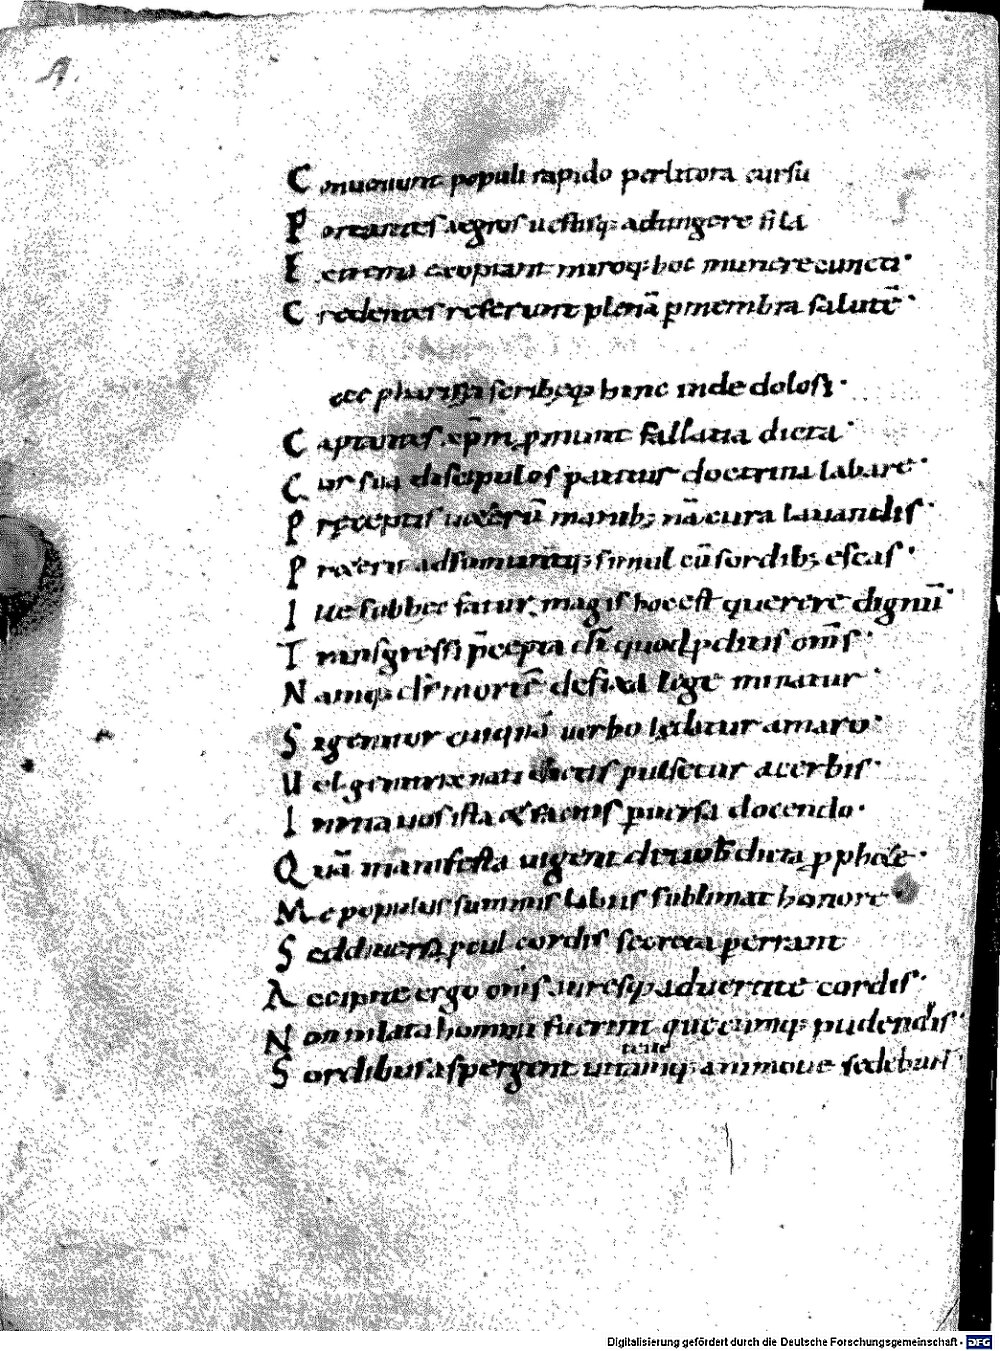 Conueniunt populi rapido per litora cursu
Portantes aegros uestisq; adtingere fila
E exoptant miroq; hoc munere cuncti·
Credentes referunt plenā p membra salutē·
ecc pharisęi scribęq hinc inde dolosi·
Captantes xp̄m promunt fallatia dicta·
Cur sua discipulos patitur doctrina labare·
Pręceptis ueterū manib; nā cura lauandis·
Preterit adsumuntq; simul cū sordib; escas·
Ille sub hęc fatur magis hoc est querere dignū·
Transgressi p̄cepta dī quod omīs·
Namq; dī mortē defixa lege minatur·
Si genitor cuiquā uerbo lędatur amaro·
Uel genitrix nati dictis pulsetur acerbis·
Inrita uos ista & facitis puersa docendo·
Quā manifesta uigent de uob dicta pphetę·
Me populus summis labiis sublimat honore·
Sed diuersa pcul cordis secreta perrant
Accipite ergo omīs auresq; aduertite cordis·
Non inlata homini fuerint quęcumq; pudendis·
Sordibus aspergent uitamq; animoue sedebunt